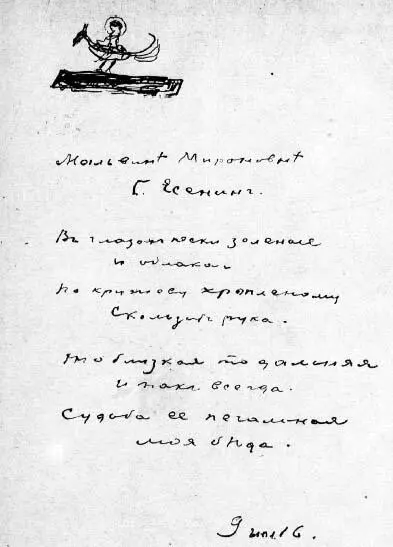 Мальвинѣ Мироновнѣ
С. Есенинъ.
Въ глазах пески зеленые
и облака.
По кружеву крапленому
Скользит рука.
То близкая то дальняя
и так всегда.
Судьба ее печальная
моя бѣда.
9 июл 16.